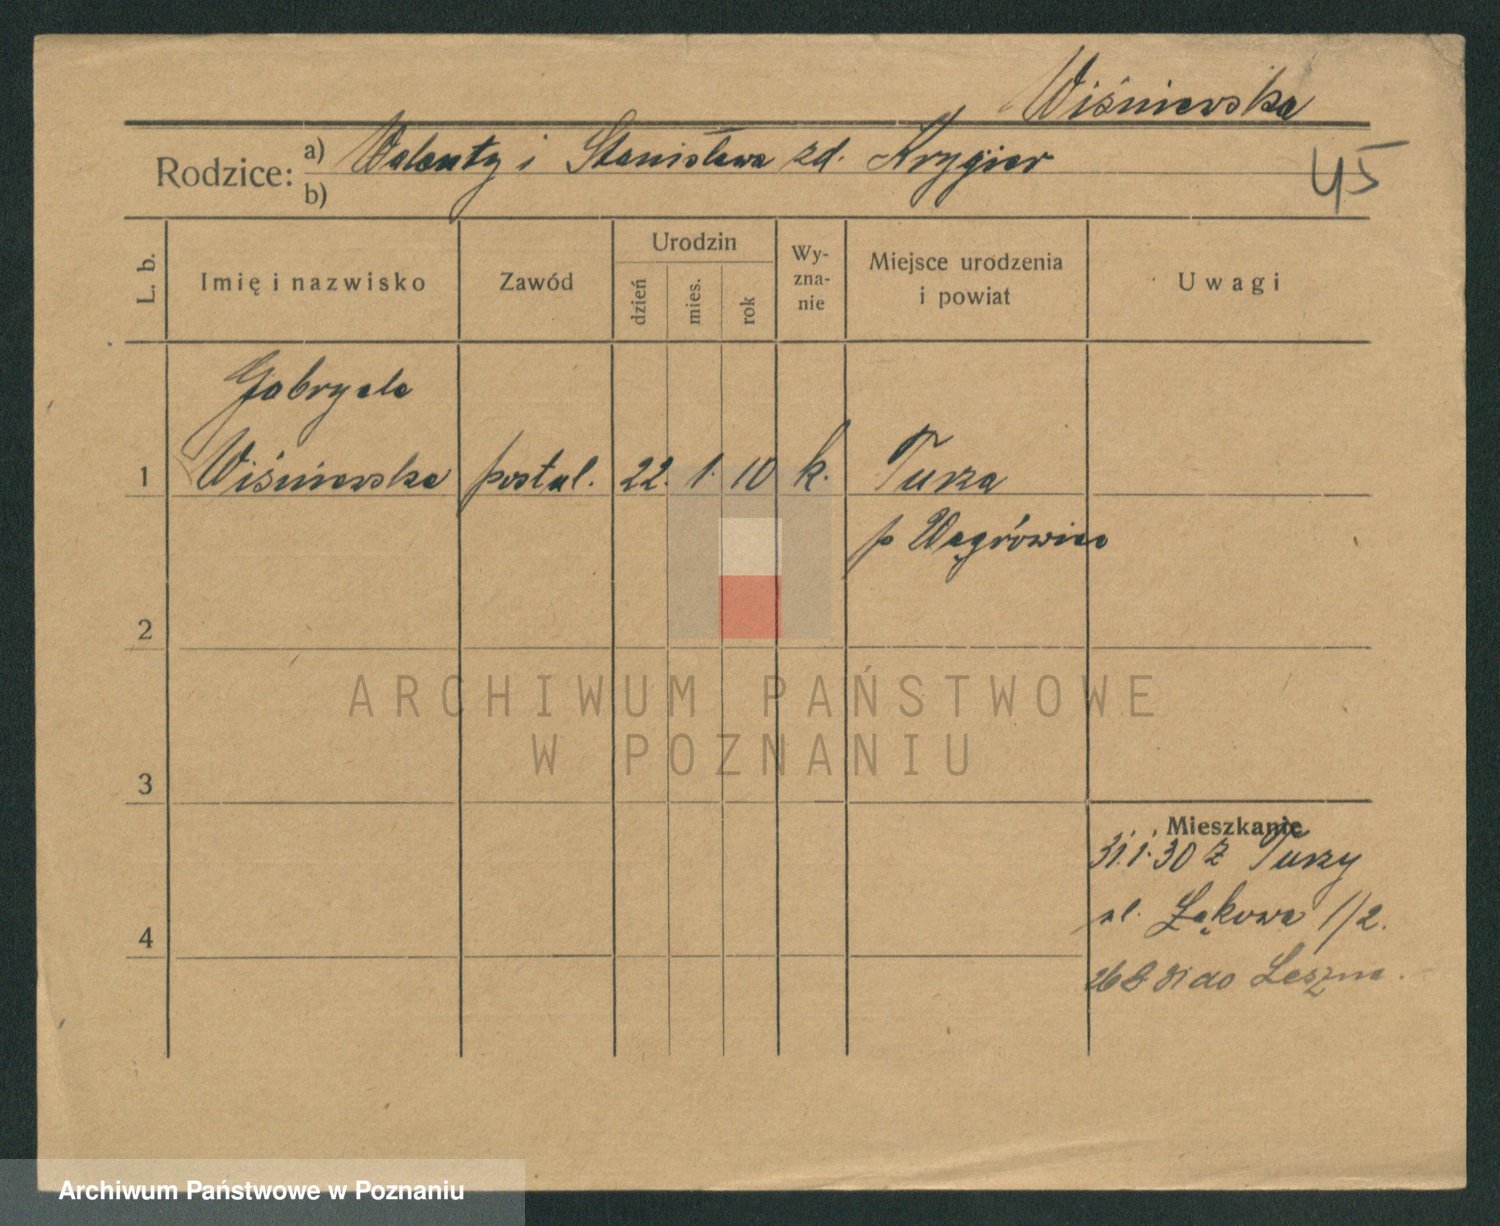 Wiśniewska
Rodzice: a) Walenty i Stanisława zd. Krygier
b)
45
L. b.
Imię i nazwisko
Zawód
Urodzin
dzień
mies.
rok
Wy-
zna-
nie
Miejsce urodzenia
i powiat
Uwagi
Gabryela
1 Wiśniewska postul. 22. 1. 10 k. Turza
p Wągrówiec
2
3
4
Mieszkanie
31.1.30 z Turzy
ul. Łąkowa 1/2.
26 8 31 do Leszna.
ARCHIWUM PAŃSTWOWE
W POZNANIU
Archiwum Państwowe w Poznaniu